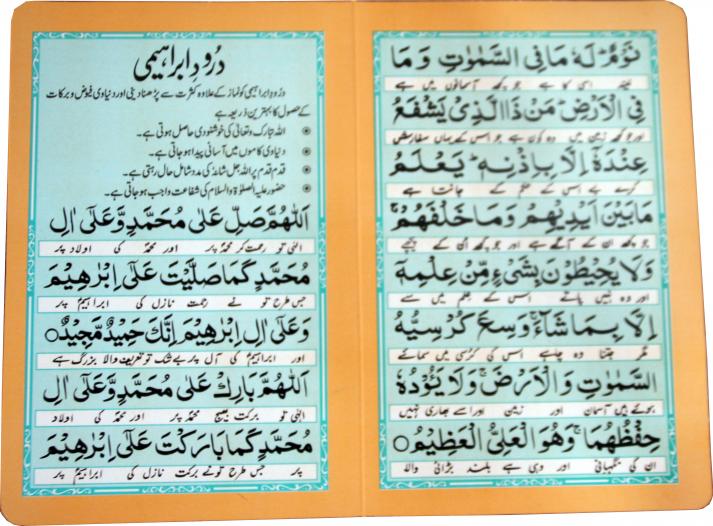 نَوْمٌ ؕ لَهٗ مَا فِی السَّمٰوٰتِ وَ مَا
نیند اسی کا ہے جو کچھ آسمانوں میں ہے
فِی الْاَرْضِ ؕ مَنْ ذَا الَّذِیْ یَشْفَعُ
اور جو کچھ زمین میں ہے وہ کون ہے جو اس کے یہاں سفارش
عِنْدَهٗۤ اِلَّا بِاِذْنِهٖ ؕ یَعْلَمُ
کرے بے اس کے حکم کے جانتا ہے
مَا بَیْنَ اَیْدِیْهِمْ وَ مَا خَلْفَهُمْ ۚ
جو کچھ ان کے آگے ہے اور جو کچھ ان کے پیچھے
وَ لَا یُحِیْطُوْنَ بِشَیْءٍ مِّنْ عِلْمِهٖۤ
اور وہ نہیں پاتے اس کے علم میں سے
اِلَّا بِمَا شَآءَ ۚ وَسِعَ كُرْسِیُّهُ
مگر جتنا وہ چاہے اس کی کرسی میں سمائے
السَّمٰوٰتِ وَ الْاَرْضَ ۚ وَ لَا یَـُٔوْدُهٗ
ہوئے ہیں آسمان اور زمین اور اسے بھاری نہیں
حِفْظُهُمَا ۚ وَ هُوَ الْعَلِیُّ الْعَظِیْمُ ○
ان کی نگہبانی اور وہی ہے بلند بڑائی والا
درُودِ ابراہیمی
درُودِ ابراہیمی کو نماز کے علاوہ کثرت سے پڑھنا دینی اور دنیاوی فیوض و برکات
کے حصول کا بہترین ذریعہ ہے
اللہ تبارک وتعالٰی کی خوشنودی حاصل ہوتی ہے۔
دنیاوی کاموں میں آسانی پیدا ہو جاتی ہے۔
قدم قدم پر اللہ جل شانہٗ کی مدد شامل حال رہتی ہے۔
حضور علیہ الصلوٰۃ والسلام کی شفاعت واجب ہو جاتی ہے۔
اَللّٰهُمَّ صَلِّ عَلٰی مُحَمَّدٍ وَّعَلٰۤی اٰلِ
الٰہی تو رحمت کر محمدؐ پر اور محمدؐ کی اولاد پر
مُحَمَّدٍ كَمَا صَلَّیْتَ عَلٰۤی اِبْرٰهِیْمَ
جس طرح تو نے رحمت نازل کی ابراہیمؑ پر
وَعَلٰۤی اٰلِ اِبْرٰهِیْمَ اِنَّكَ حَمِیْدٌ مَّجِیْدٌ ○
اور ابراہیمؑ کی آل پر بے شک تو تعریف والا بزرگ ہے
اَللّٰهُمَّ بَارِكْ عَلٰی مُحَمَّدٍ وَّعَلٰۤی اٰلِ
الٰہی تو برکت بھیج محمدؐ پر اور محمدؐ کی اولاد
مُحَمَّدٍ كَمَا بَارَكْتَ عَلٰۤی اِبْرٰهِیْمَ
پر جس طرح تو نے برکت نازل کی ابراہیمؑ پر